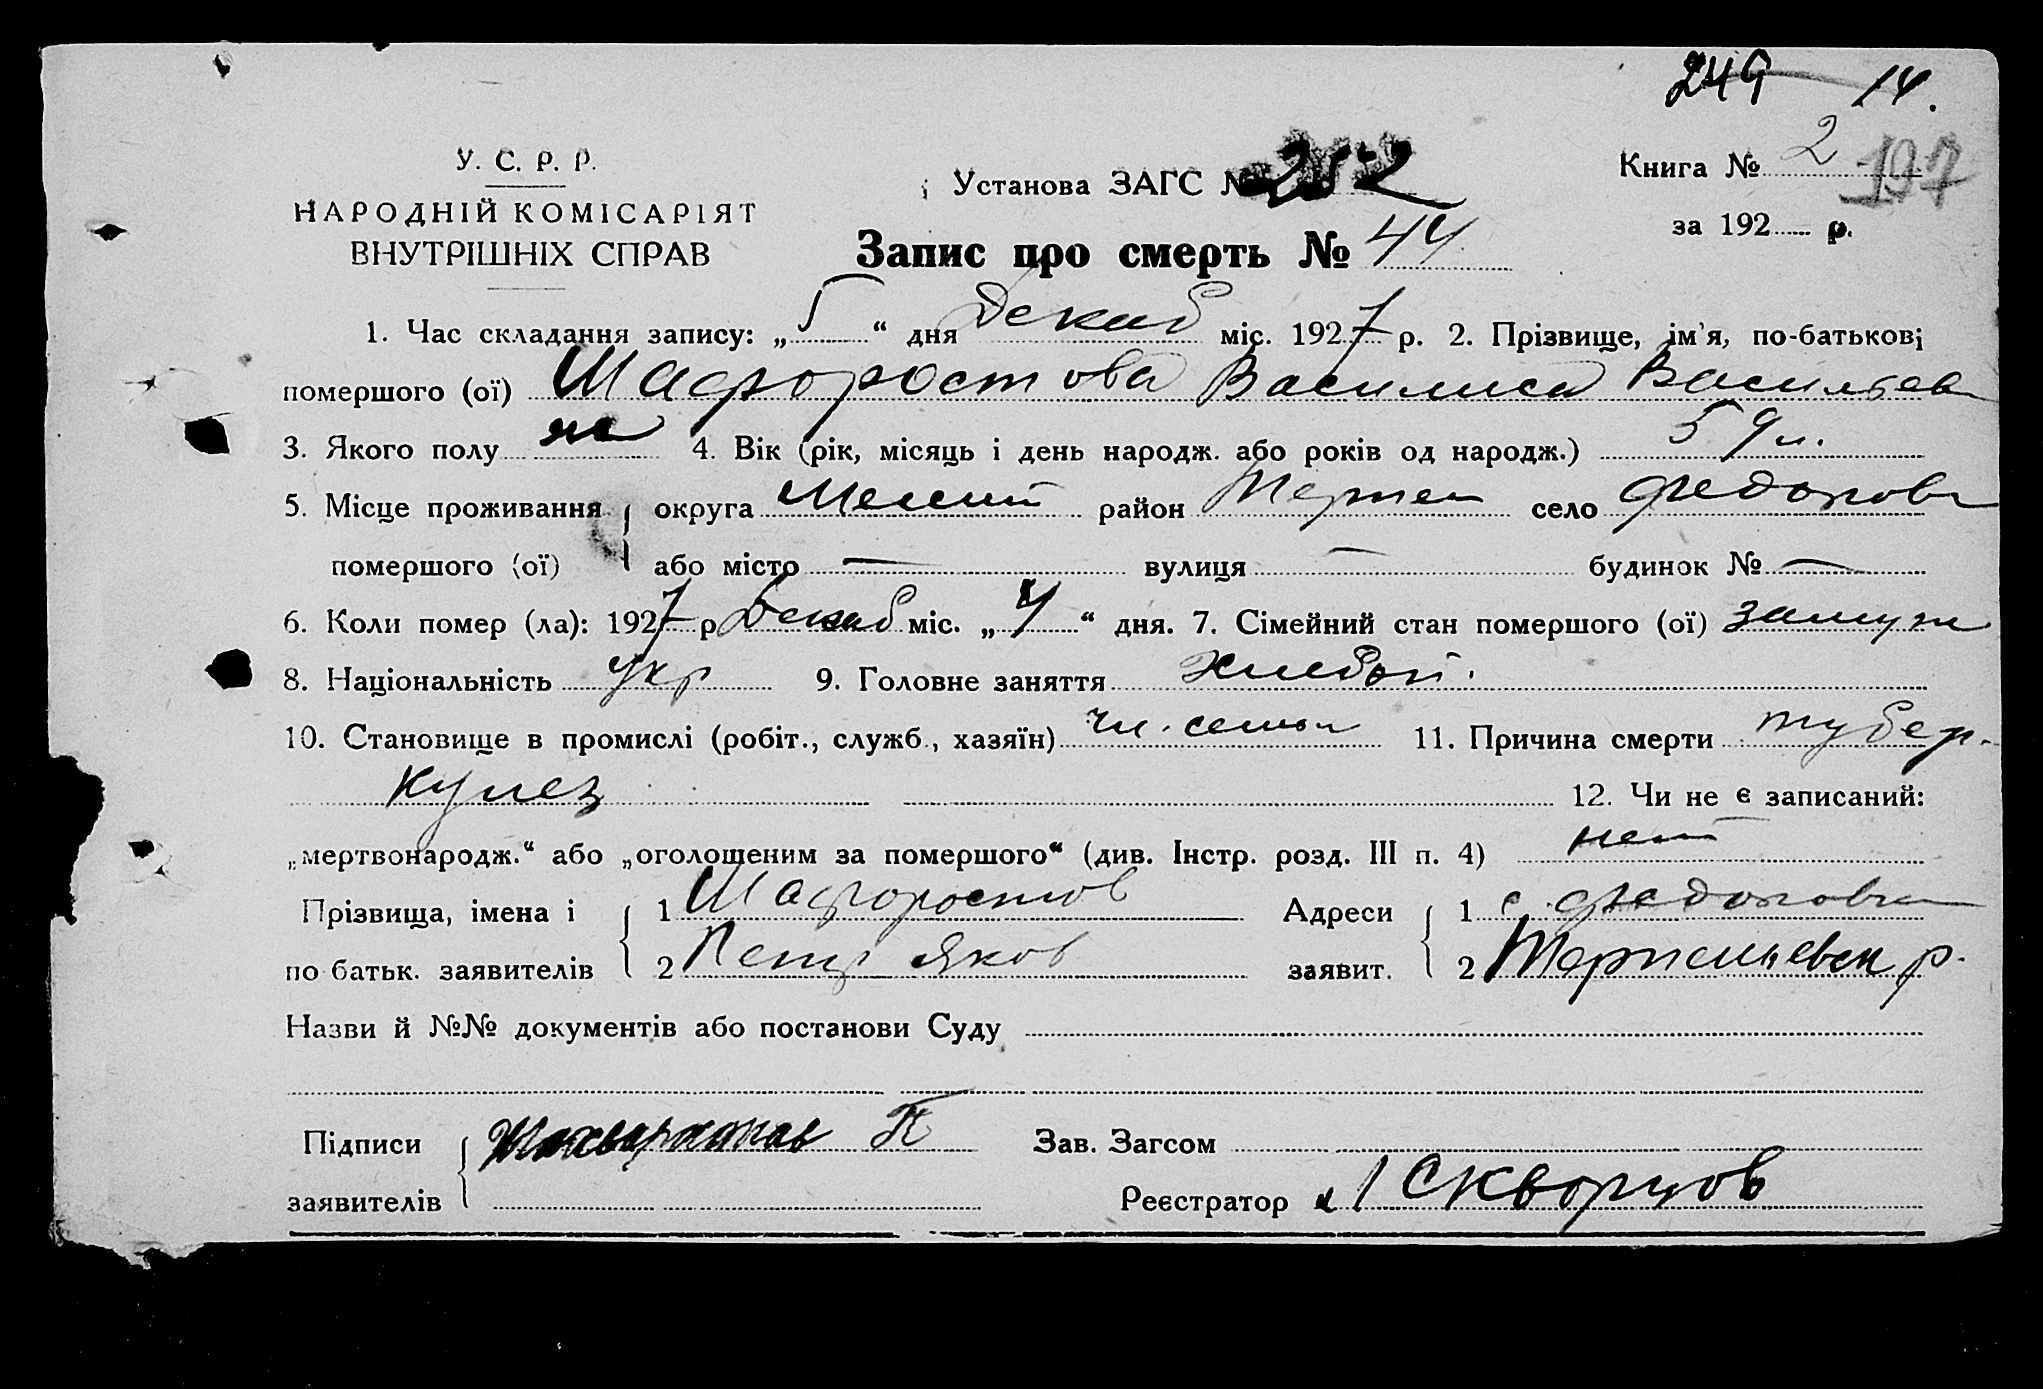 249 14.
У. С. Р. Р.
НАРОДНІЙ КОМІСАРІЯТ
ВНУТРІШНІХ СПРАВ
Установа ЗАГС № 252
Книга № 2 197
за 192 р.
Запис про смерть № 44
1. Час складання запису: „5“ дня Декаб міс. 1927 р. 2. Прізвище, ім'я, по-батькові
помершого (ої) Шафоростова Василиса Васильев
3. Якого полу же 4. Вік (рік, місяць і день народж. або років од народж.) 59 л.
5. Місце проживання округа район село Федоровка
помершого (ої) або місто — вулиця — будинок № —
6. Коли помер (ла): 1927 р Декаб міс. „4“ дня. 7. Сімейний стан помершого (ої) замуж
8. Національність укр 9. Головне заняття хлебоп.
10. Становище в промислі (робіт., служб., хазяїн) чл. семьи 11. Причина смерти тубер-
кулез 12. Чи не є записаний:
„мертвонародж.“ або „оголошеним за помершого“ (див. Інстр. розд. III п. 4) нет
Прізвища, імена і 1 Шафоростов Адреси 1 с. Федоровка
по батьк. заявителів 2 Петр Яков заявит. 2 р.
Назви й №№ документів або постанови Суду
Підписи П Зав. Загсом
заявителів Реєстратор Скворцов